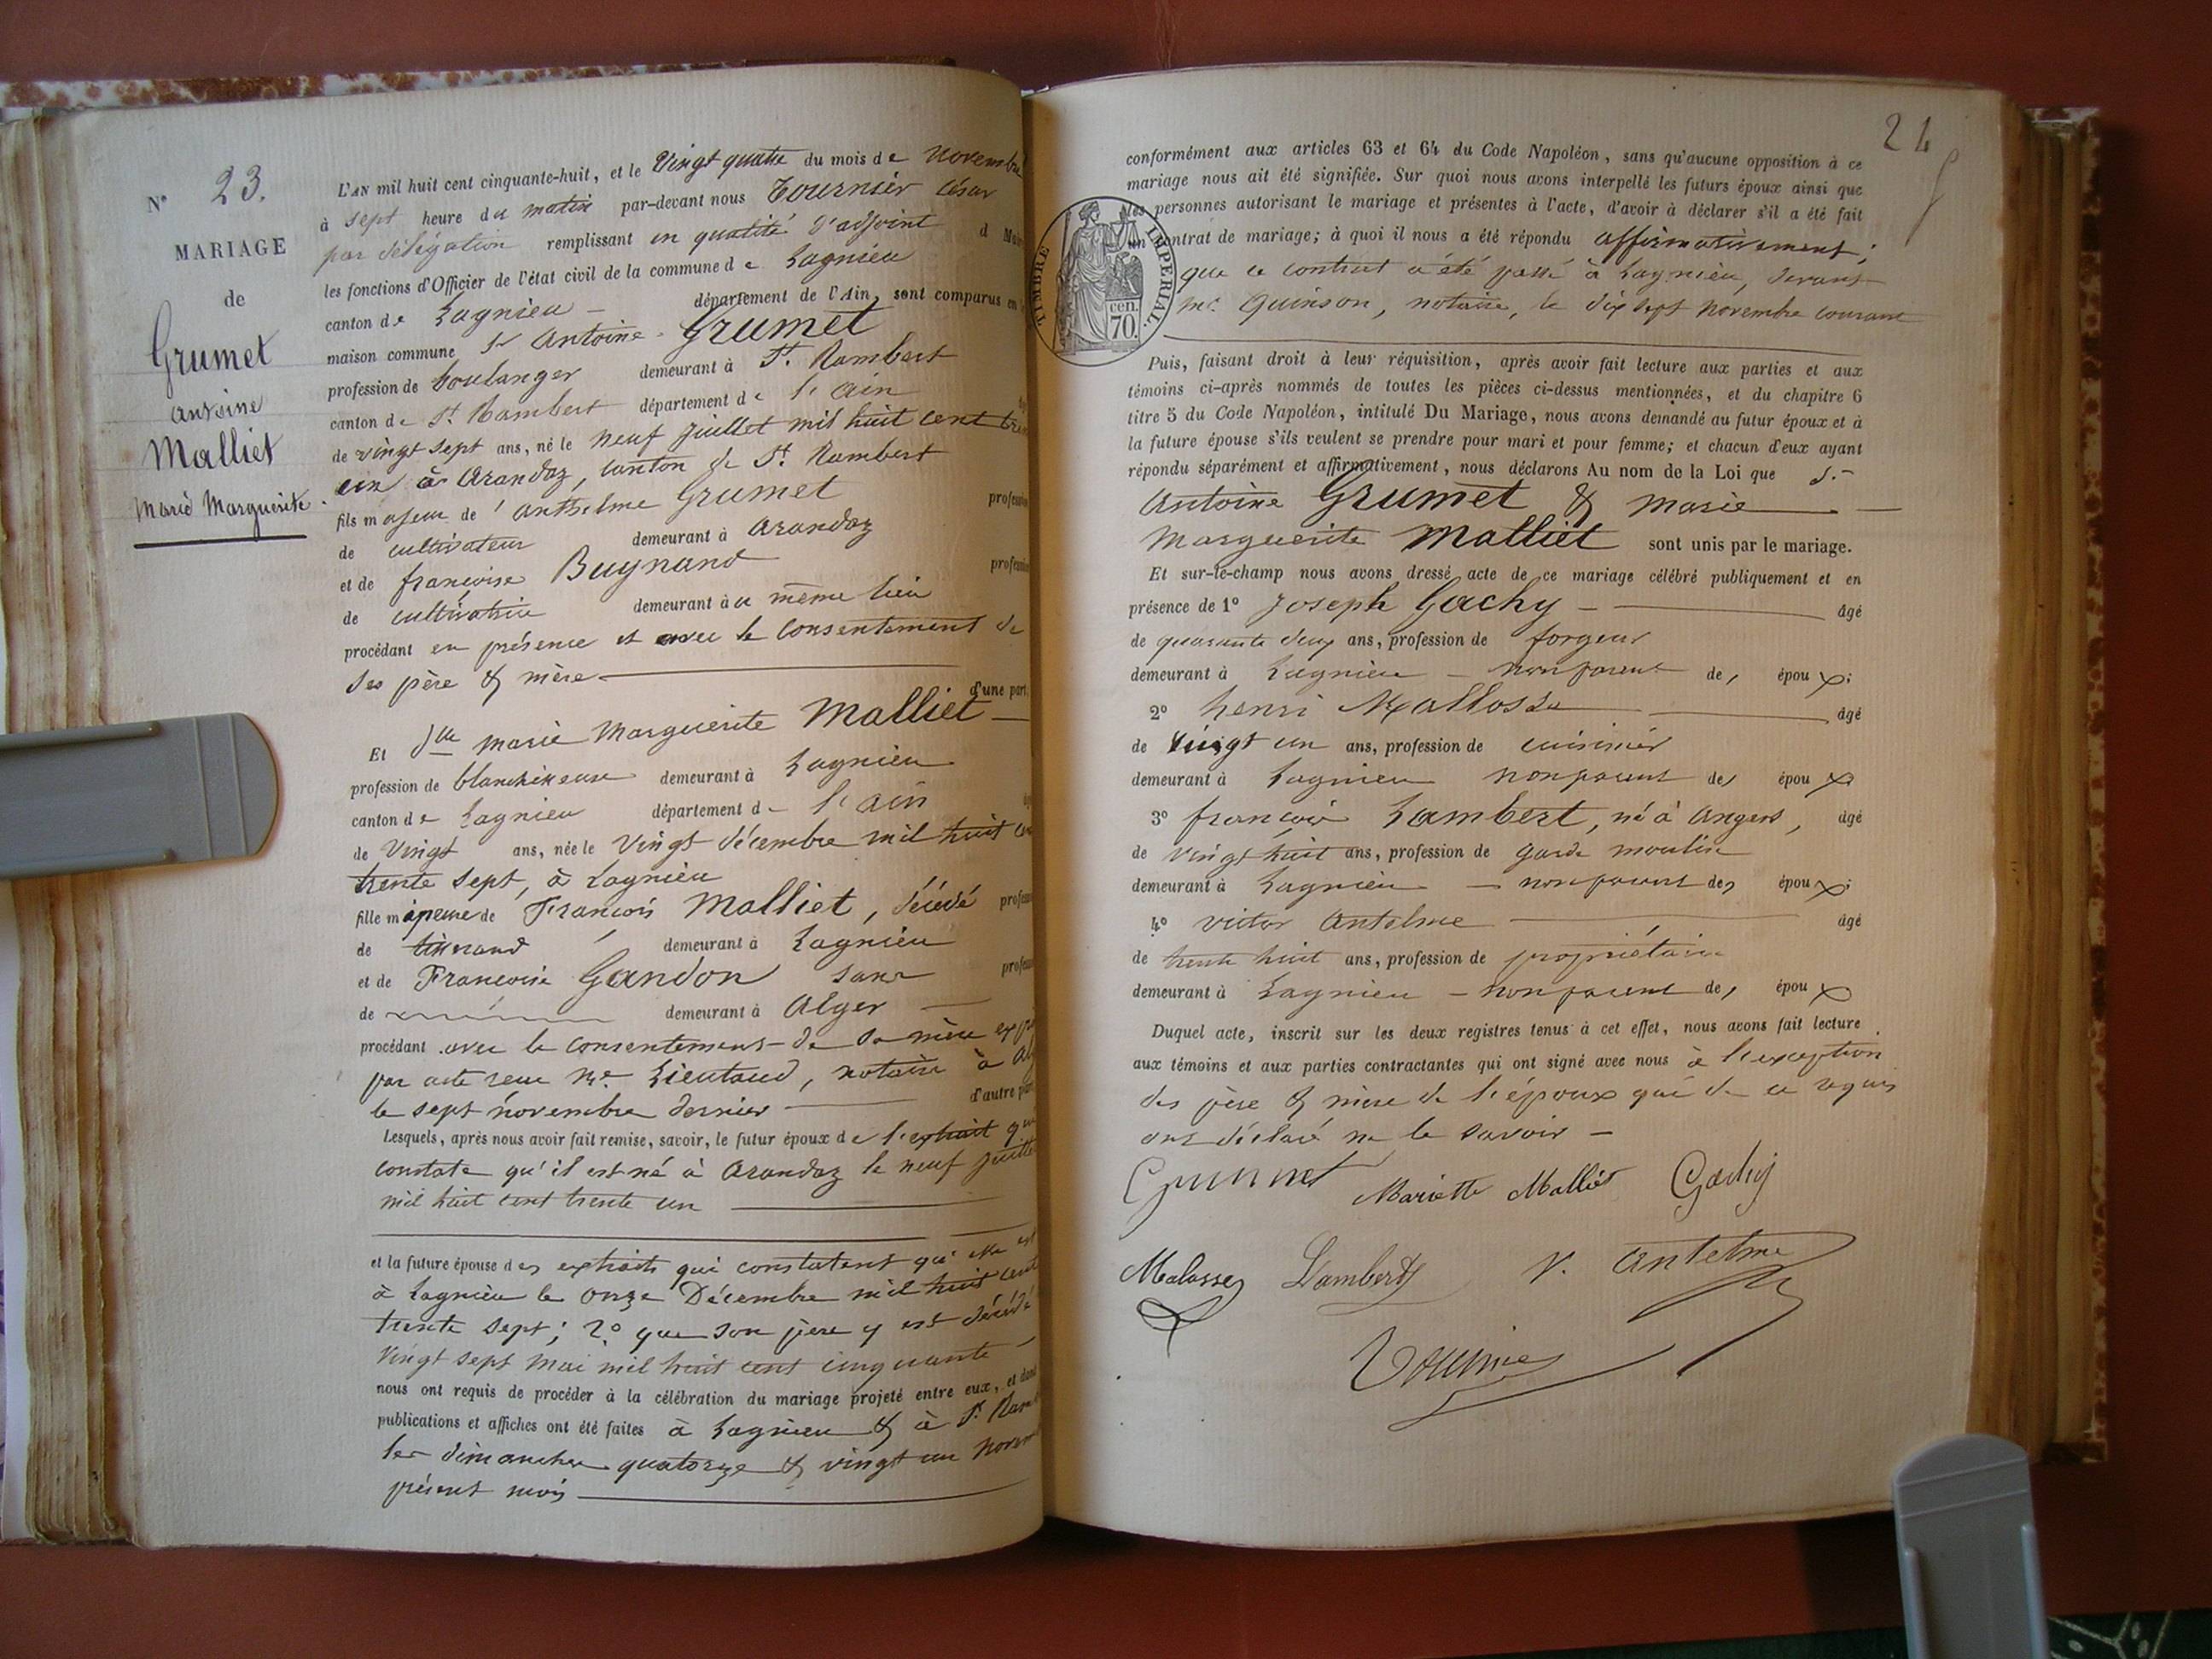 N° 23.
MARIAGE
de
Grumet
antoine
Malliet
Marie Marguerite
L'AN mil huit cent cinquante-huit, et le Vingt quatre du mois de novembre
à sept heure du matin par-devant nous Tournier César
par délégation remplissant en qualité d'adjoint d
les fonctions d'Officier de l'état civil de la commune de Lagnieu
canton de Lagnieu – département de l'Ain, sont comparus en
maison commune Sr Antoine Grumet
profession de boulanger demeurant à St. Rambert
canton de St. Rambert département de l'ain
de vingt sept ans, né le neuf juillet mil huit cent
un à Arandaz, canton de St. Rambert
fils majeur de anthelme Grumet profession
de cultivateur demeurant à arandaz
et de françoise Buynand profession
de cultivatrice demeurant au même lieu
procédant en présence et avec le consentement de
ses père & mère
d'une part.
Et dlle marie Marguerite Malliet
profession de blanchisseuse demeurant à Lagnieu
canton de Lagnieu département de l'ain
de Vingt ans, née le Vingt décembre mil huit
trente sept, à Lagnieu
fille mineure de François Malliet, décédé
de tisserand demeurant à Lagnieu
et de Françoise Gandon sans
de demeurant à Alger
procédant avec le consentement de sa mère
par acte reçu Me. Lieutaud, notaire à
le sept novembre dernier
d'autre part
Lesquels, après nous avoir fait remise, savoir, le futur époux de l'extrait qui
constate qu'il est né à Arandaz le neuf juillet
mil huit cent trente un
et la future épouse des extraits qui constatent qu'elle est
à Lagnieu le onze Décembre mil huit cent
trente sept; 2° que son père y est décédé
Vingt sept mai mil huit cent cinquante
nous ont requis de procéder à la célébration du mariage projeté entre eux, et dont
publications et affiches ont été faites à Lagnieu & à St.
les dimanches quatorze & vingt un
présent mois
24
conformément aux articles 63 et 64 du Code Napoléon, sans qu'aucune opposition à ce
mariage nous ait été signifiée. Sur quoi nous avons interpellé les futurs époux ainsi que
les personnes autorisant le mariage et présentes à l'acte, d'avoir à déclarer s'il a été fait
un contrat de mariage; à quoi il nous a été répondu affirmativement;
que ce contrat a été passé à Lagnieu, devant
me. Quinson, notaire, le dix sept novembre courant
TIMBRE IMPERIAL.
cen.
70.
Puis, faisant droit à leur réquisition, après avoir fait lecture aux parties et aux
témoins ci-après nommés de toutes les pièces ci-dessus mentionnées, et du chapitre 6
titre 5 du Code Napoléon, intitulé Du Mariage, nous avons demandé au futur époux et à
la future épouse s'ils veulent se prendre pour mari et pour femme; et chacun d'eux ayant
répondu séparément et affirmativement, nous déclarons Au nom de la Loi que Sr
Antoine Grumet & Marie
Marguerite Malliet sont unis par le mariage.
Et sur-le-champ nous avons dressé acte de ce mariage célébré publiquement et en
présence de 1° Joseph Gachy âgé
de quarante deux ans, profession de forgeur
demeurant à Lagnieu – non parent des époux;
2° henri Mallosse âgé
de Vingt un ans, profession de cuisinier
demeurant à Lagnieu non parent des époux
3° françois Lambert, né à Angers, âgé
de vingt huit ans, profession de garde moulin
demeurant à Lagnieu – non parent des époux;
4° victor Antelme âgé
de trente huit ans, profession de propriétaire
demeurant à Lagnieu – non parent des époux
Duquel acte, inscrit sur les deux registres tenus à cet effet, nous avons fait lecture
aux témoins et aux parties contractantes qui ont signé avec nous à l'exception
des père & mère de l'époux qui de ce requis
ont déclaré ne le savoir –
Grumet Mariette Malliet Gachy
Malosse Lambert V. Antelme
Tournier